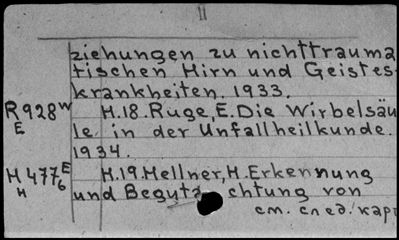 II
ziehungen zu nichttrauma
tischen Hirn und Geistes-
krankheiten. 1933.
R928w H.18. Ruge, E. Die Wirbelsäu
E le in der Unfallheilkunde.
1934.
H477E H.19. Hellner, H. Erkennung
H 6 und Beguta chtung von
см. след. карт